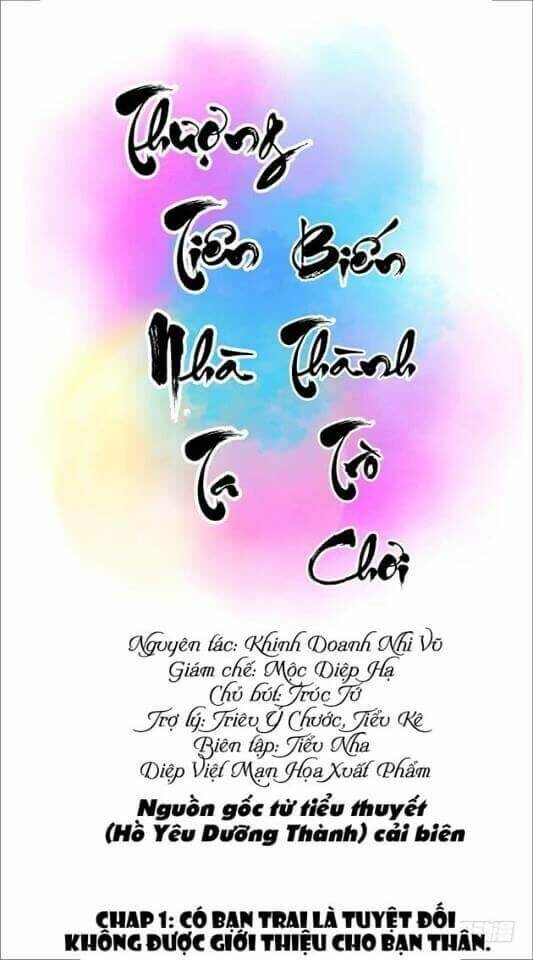 Thượng
Tiên
Nhà
Ta
Biến
Thành
Trò
Chơi
Nguyên tác: Khinh Doanh Nhi Võ
Giám chế: Mộc Diệp Hạ
Chủ bút: Trúc Tứ
Trợ lý: Triêu Ý Chước, Tiểu Kê
Biên tập: Tiểu Nha
Diệp Việt Mạn Họa Xuất Phẩm
Nguồn gốc từ tiểu thuyết
(Hồ Yêu Dưỡng Thành) cải biên
CHAP 1: CÓ BẠN TRAI LÀ TUYỆT ĐỐI
KHÔNG ĐƯỢC GIỚI THIỆU CHO BẠN THÂN.